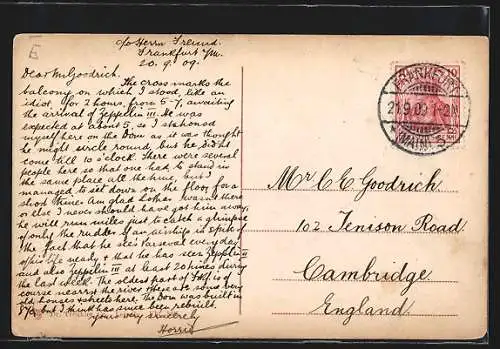 E
c/o Herrn Freund.
Frankfurt a/M.
20.9.09.
Dear Mr Goodrich.
The cross marks the
balcony on which I stood, like an
idiot, for 2 hours, from 5-7, awaiting
the arrival of Zeppelin III. He was
expected at about 5, so I stationed
myself here on the Dom as it was thought
he might circle round, but he didnt
come till 10 o'clock. There were several
people here so that one had to stand in
the same place all the time, but I
managed to sit down on the floor for a
short time. Am glad Lother wasn't here
or else I never should have got him away
he will run miles just to catch a glimpse
of only the rudder of an airship in spite of
the fact that he sees Parseval everyday
of his life nearly & that he has seen Zeppelin II
and also Zeppelin III at least 20 times during
the last week. The oldest part of Fkft is of
course nearest the river & there are some very
old houses & streets here. The Dom was built in
but I think has since been rebuilt.
Yours very sincerely
Horris
Mr C E Goodrich
102 Tenison Road
Cambridge
England
FRANKFURT
21.9.09 1-2N
(MAIN)